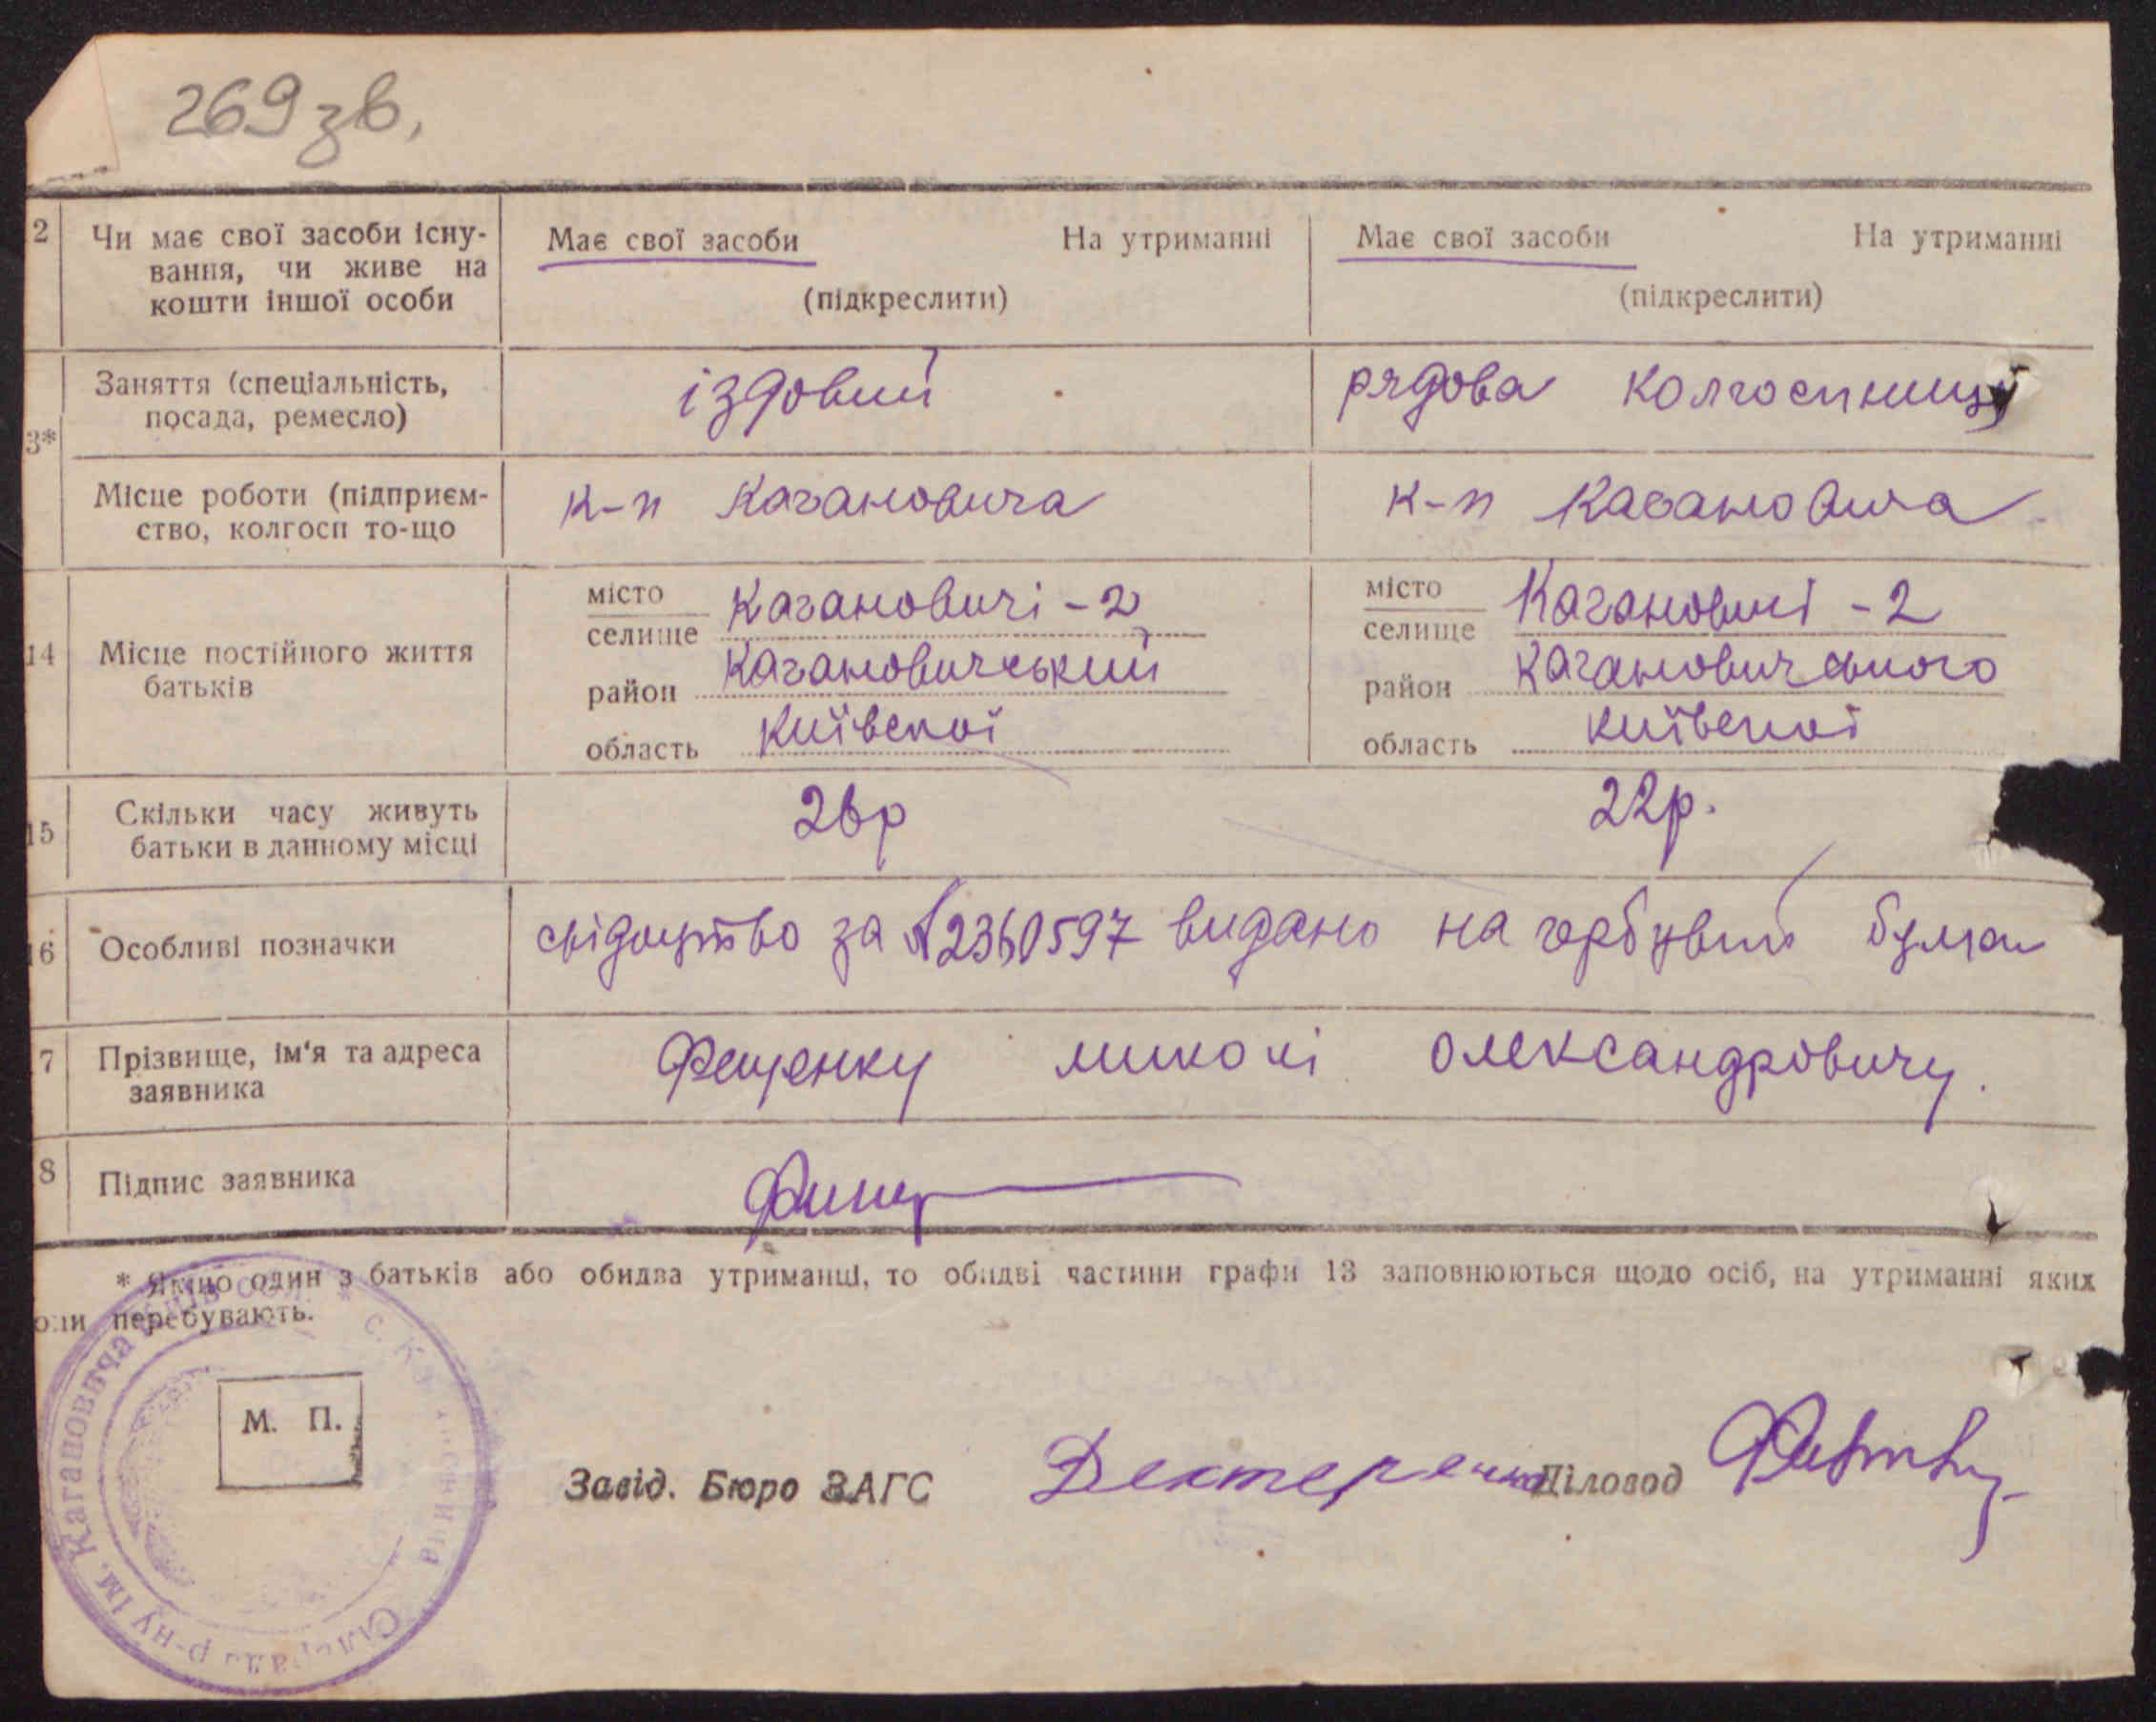 269 зв.
2 Чи має свої засоби існу- Має свої засоби На утриманні Має свої засоби На утриманні
вання, чи живе на
кошти іншої особи (підкреслити) (підкреслити)
Заняття (спеціальність, їздовий рядова колгоспниця
посада, ремесло)
3*
Місце роботи (підприєм- к-п Кагановича к-п Кагановича
ство, колгосп то-що
місто Кагановичі - 2 місто Кагановичі - 2
селище селище
14 Місце постійного життя
батьків
район Кагановичський район Кагановичського
область Київської область Київської
15 Скільки часу живуть 26р 22р.
батьки в данному місці
16 Особливі позначки свідоцтво за №2360597 видано на гербувий
7 Прізвище, ім'я та адреса Фещенку Миколі Олександровичу.
заявника
8 Підпис заявника
* Якщо один з батьків або обидва утриманці, то обидві частини графи 13 заповнюються щодо осіб, на утриманні яких
они перебувають.
М. П.
Завід. Бюро ЗАГС Дехтеренко Діловод
Сільрада р-ну ім. Кагановича Київ обл.